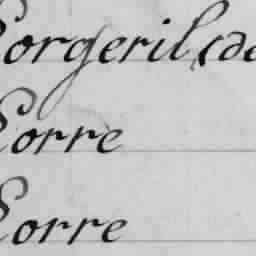 Gorgeril (de
Gorre
Gorre